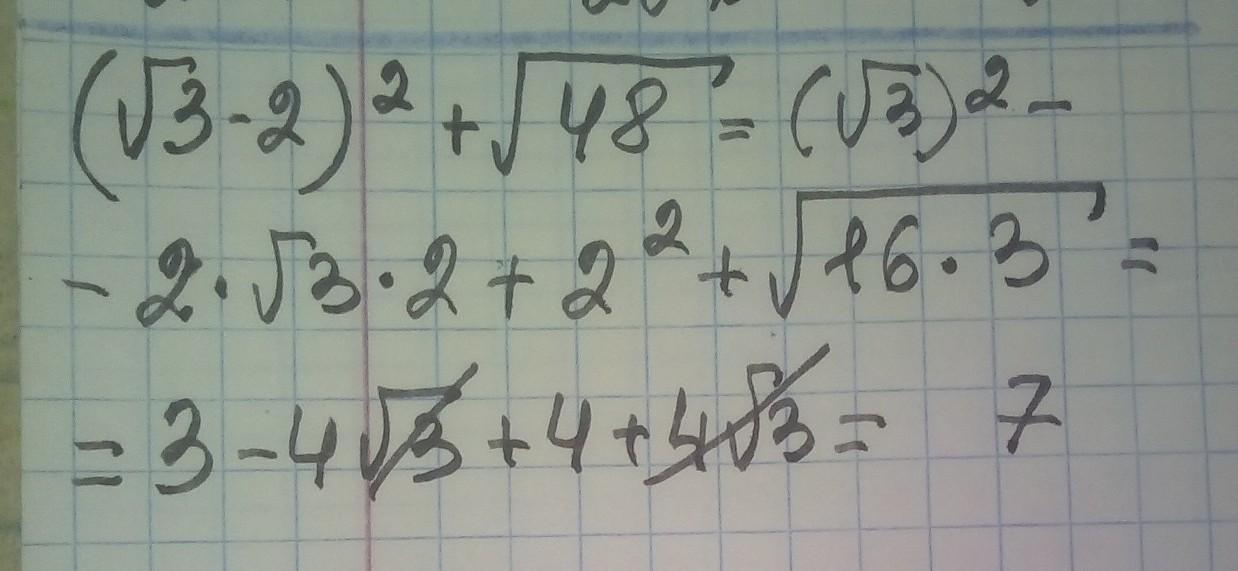 (√3-2)² + √48 = (√3)² -
- 2·√3·2 + 2² + √16·3 =
= 3 - 4√3 + 4 + 4√3 = 7